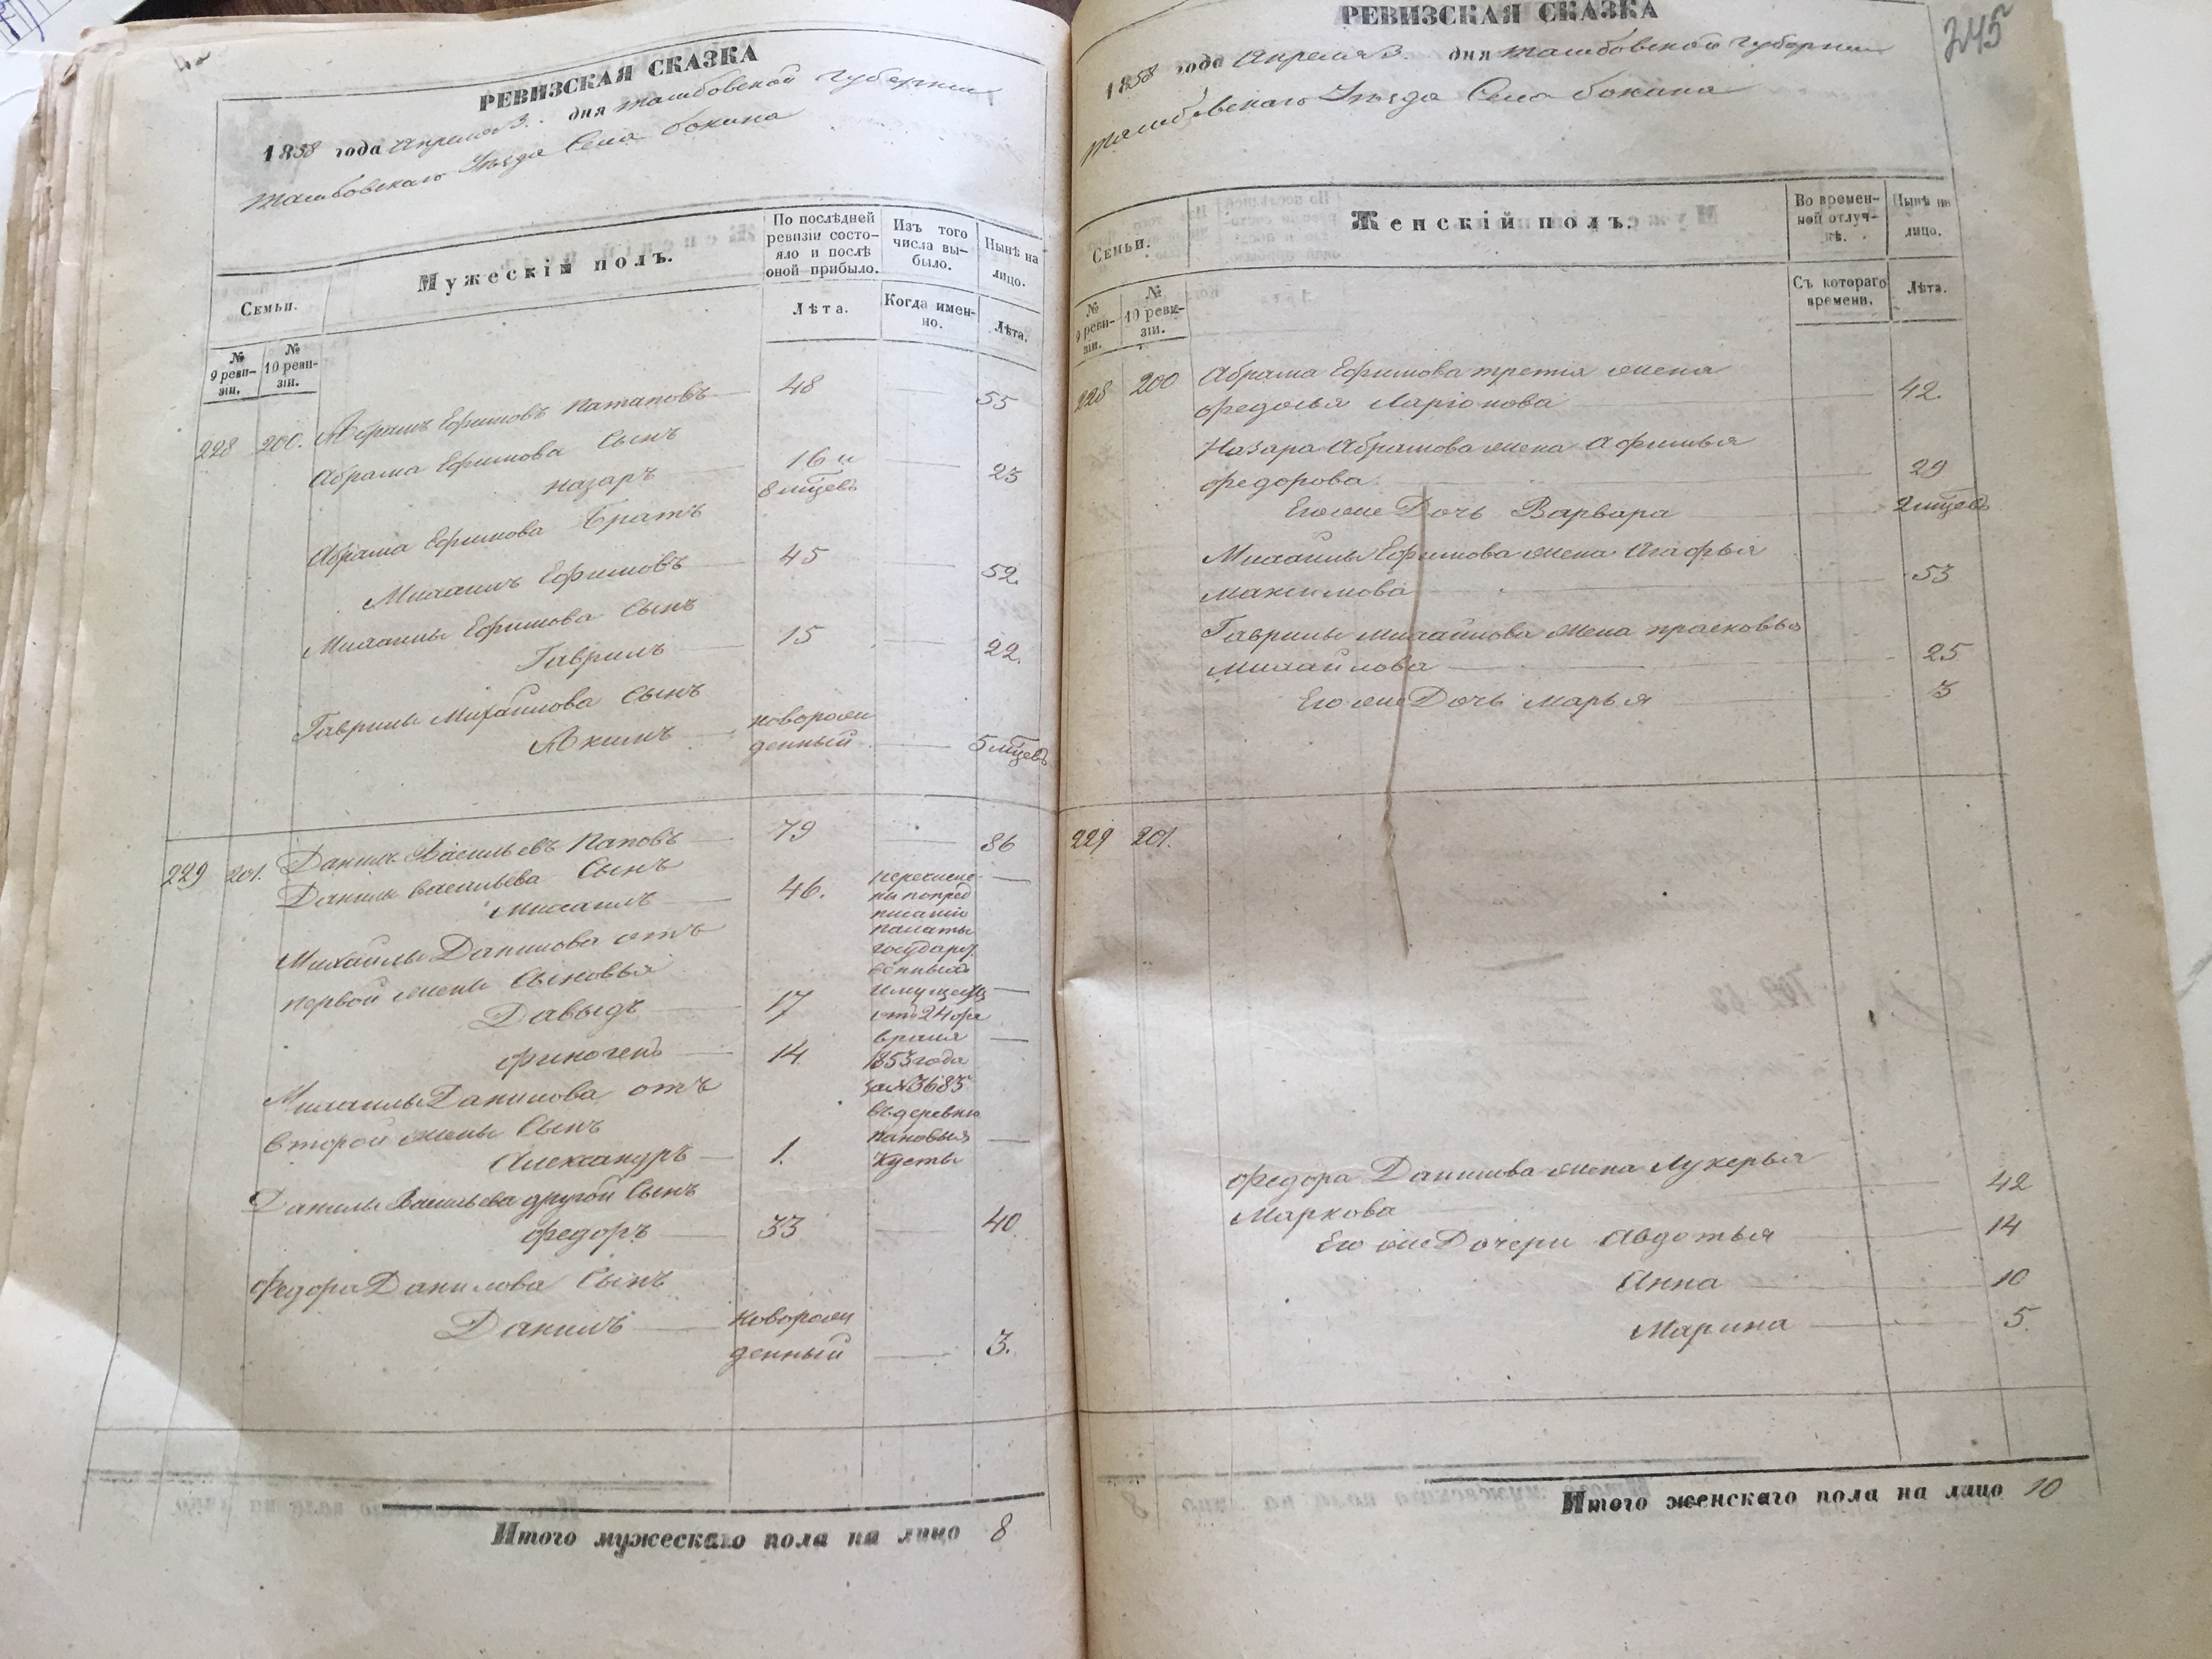 РЕВИЗСКАЯ СКАЗКА
1858 года Апреля 3. дня тамбовской губернии
тамбовскаго Уезда Села бокина
Семьи.
Мужескій полъ.
По послѣдней ревизіи состояло и послѣ оной прибыло.
Изъ того числа выбыло.
Нынѣ на лицо.
№ 9 ревизіи.
№ 10 ревизіи.
Лѣта.
Когда именно.
Лѣта.
228 200. Абрамъ Ефимовъ Патаповъ 48 55
Абрама Ефимова Сынъ
назаръ 16 и 8 мцевъ 23
Абрама Ефимова Братъ
Михаилъ Ефимовъ 45 52.
Михаилы Ефимова Сынъ
Гаврилъ 15 22.
Гаврилы Михайлова Сынъ
Акимъ новорож
денный 5 мцевъ
229 201. Данилъ Васильевъ Паповъ 79 86
Данилы васильева Сынъ
Михаилъ 46.
Михайлы Данилова отъ
первой жены Сыновья
Давыдъ 17
финогенъ 14
Михаилы Данилова отъ
второй жены Сынъ
Александръ 1.
перечисле
ны попред
писанію
палаты
государст
венныхъ
имуществ
отъ 24 фе
враля
1853 года
за № 3683
въ деревню
пановыя
кусты
Данилы Васильева другой Сынъ
федоръ 33 40.
федора Данилова Сынъ
Данилъ новорож
денный 3.
Итого мужескаго пола на лицо 8
РЕВИЗСКАЯ СКАЗКА
245
1858 года Апреля 3. дня тамбовской губернии
тамбовскаго Уезда Села бокина
Семьи.
Женскій полъ.
Во временной отлучкѣ.
Нынѣ на лицо.
№ 9 ревизіи.
№ 10 ревизіи.
Съ котораго времени.
Лѣта.
228 200 Абрама Ефимова третія жена
федосья Ларіонова 42.
Назара Абрамова жена Афимья
федорова 29
Его же Дочь Варвара 2 мцевъ
Михаилы Ефимова жена Агафья
максимова 53
Гаврилы михайлова жена прасковья
михайлова 25
Его же Дочь марья 3
229 201.
федора Данилова жена Лукерья
Маркова 42
Его же Дочери Авдотья 14
Анна 10
Марина 5.
Итого женскаго пола на лицо 10